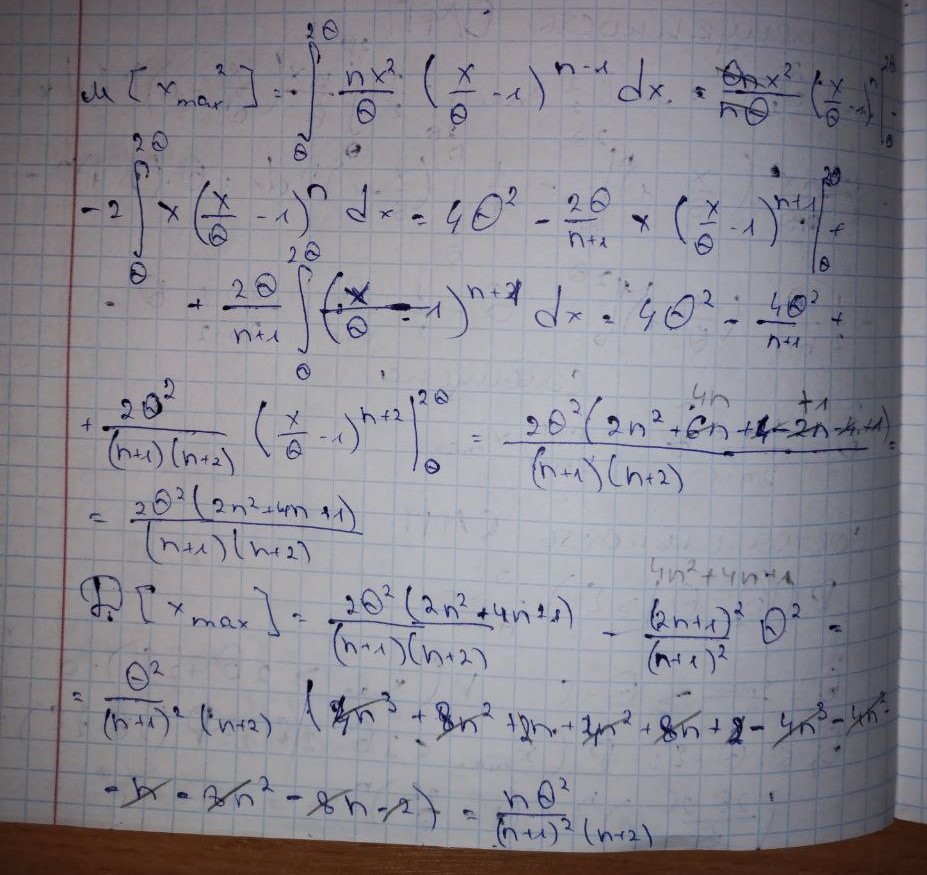 M[x²max] = ∫_θ^{2θ} nx²/θ (x/θ - 1)^{n-1} dx = θnx²/nθ (x/θ - 1)^n |_θ^{2θ} -
- 2 ∫_θ^{2θ} x (x/θ - 1)^n dx = 4θ² - 2θ/(n+1) x (x/θ - 1)^{n+1} |_θ^{2θ} +
+ 2θ/(n+1) ∫_θ^{2θ} (x/θ - 1)^{n+1} dx = 4θ² - 4θ²/(n+1) +
4n +1
+ 2θ²/((n+1)(n+2)) (x/θ - 1)^{n+2} |_θ^{2θ} = 2θ²(2n² + 6n + 4 - 2n - 4 + 1)/((n+1)(n+2)) =
= 2θ²(2n²+4n+1)/((n+1)(n+2))
4n²+4n+1
D[x max] = 2θ²(2n²+4n+1)/((n+1)(n+2)) - (2n+1)²/(n+1)² θ² =
= θ²/((n+1)²(n+2)) (4n³ + 8n² + 2n + 4n² + 8n + 2 - 4n³ - 4n²
- n - 8n² - 8n - 2) = nθ²/((n+1)²(n+2))